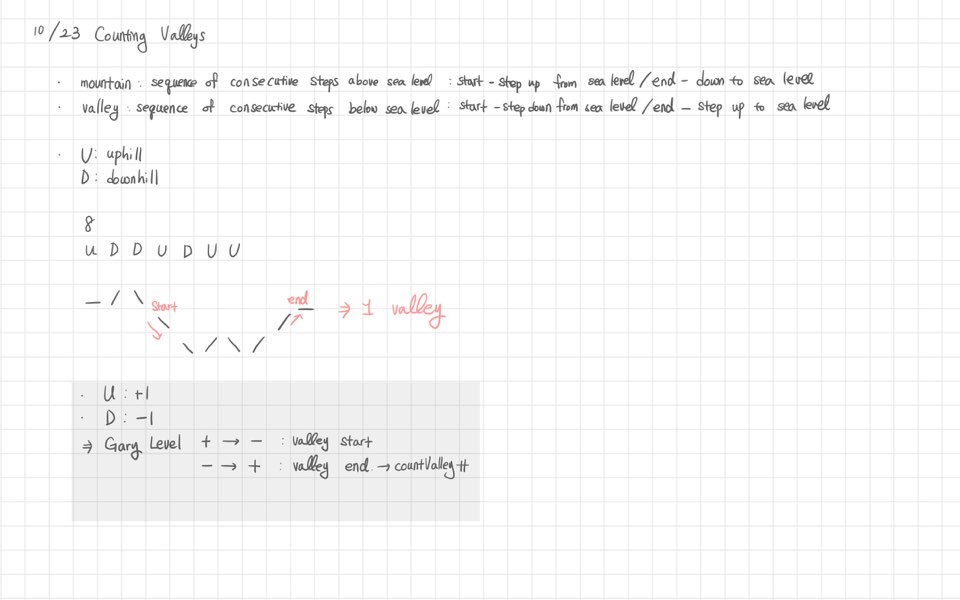 10/23 Counting Valleys
· mountain : sequence of consecutive steps above sea level : start - step up from sea level / end - down to sea level
· valley : sequence of consecutive steps below sea level : start - step down from sea level / end - step up to sea level
· U : uphill
D : downhill
8
U D D U D U U
start
end
⇒ 1 valley
· U : +1
· D : -1
⇒ Gary Level + → - : valley start
- → + : valley end → countValley #